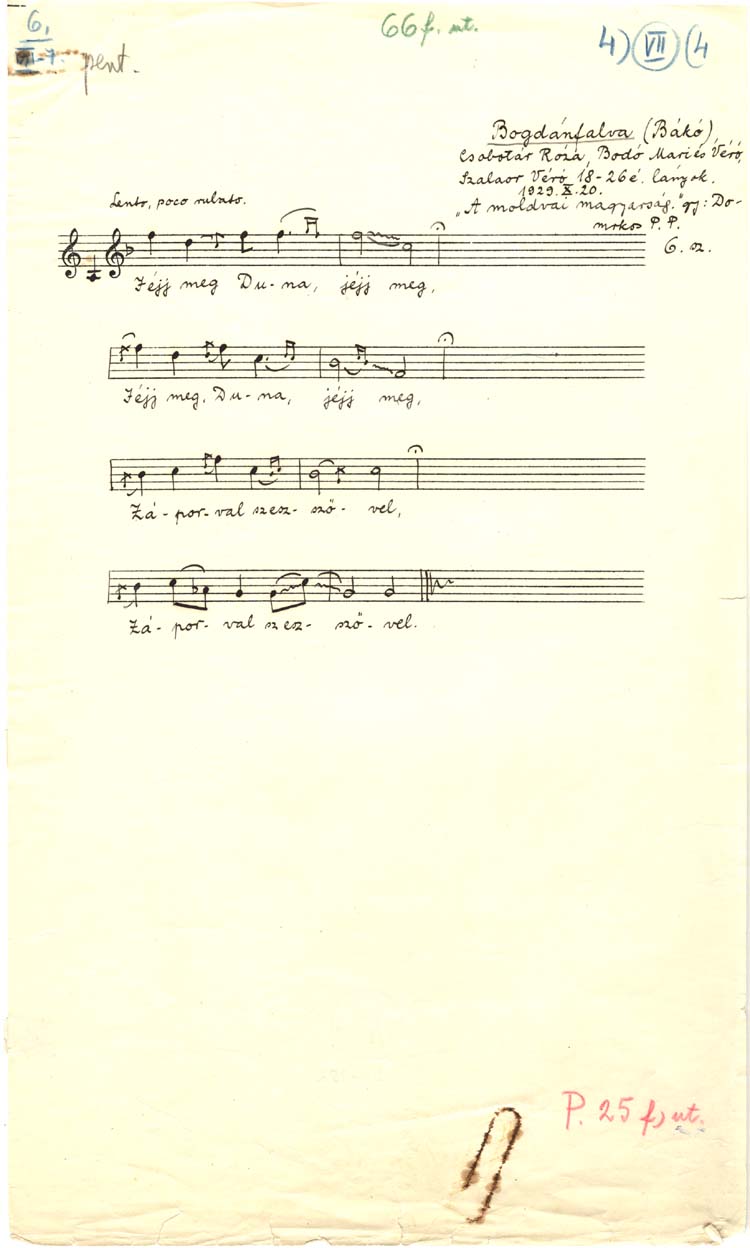 6,
VI-7.
pent.
66 f. ut.
4) VII (4
Bogdánfalva (Bákó)
Csobotár Rózá, Bodó Mari és Véró,
Szalaor Véró 18-26 é. lányok.
1929. X. 20.
„A moldvai magyarság." gy: Do-
mokos P. P.
6. sz.
Lento, poco rubato.
Jéjj meg Du-na, jéjj meg,
Jéjj meg, Du-na, jéjj meg,
Zá-por-val szesz-sző-vel,
Zá-por-val szesz-sző-vel.
P. 25 f) ut.